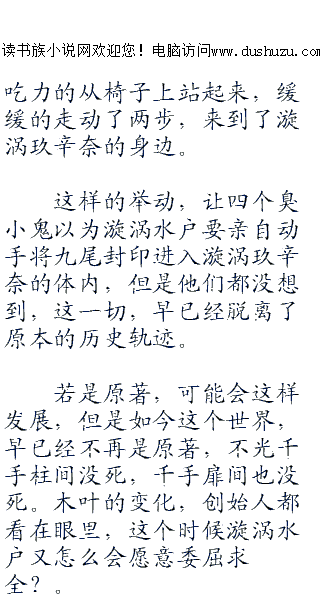 读书族小说网欢迎您！电脑访问www.dushuzu.com
吃力的从椅子上站起来，缓
缓的走动了两步，来到了漩
涡玖辛奈的身边。
这样的举动，让四个臭
小鬼以为漩涡水户要亲自动
手将九尾封印进入漩涡玖辛
奈的体内，但是他们都没想
到，这一切，早已经脱离了
原本的历史轨迹。
若是原著，可能会这样
发展，但是如今这个世界，
早已经不再是原著，不光千
手柱间没死，千手扉间也没
死。木叶的变化，创始人都
看在眼里，这个时候漩涡水
户又怎么会愿意委屈求
全？。